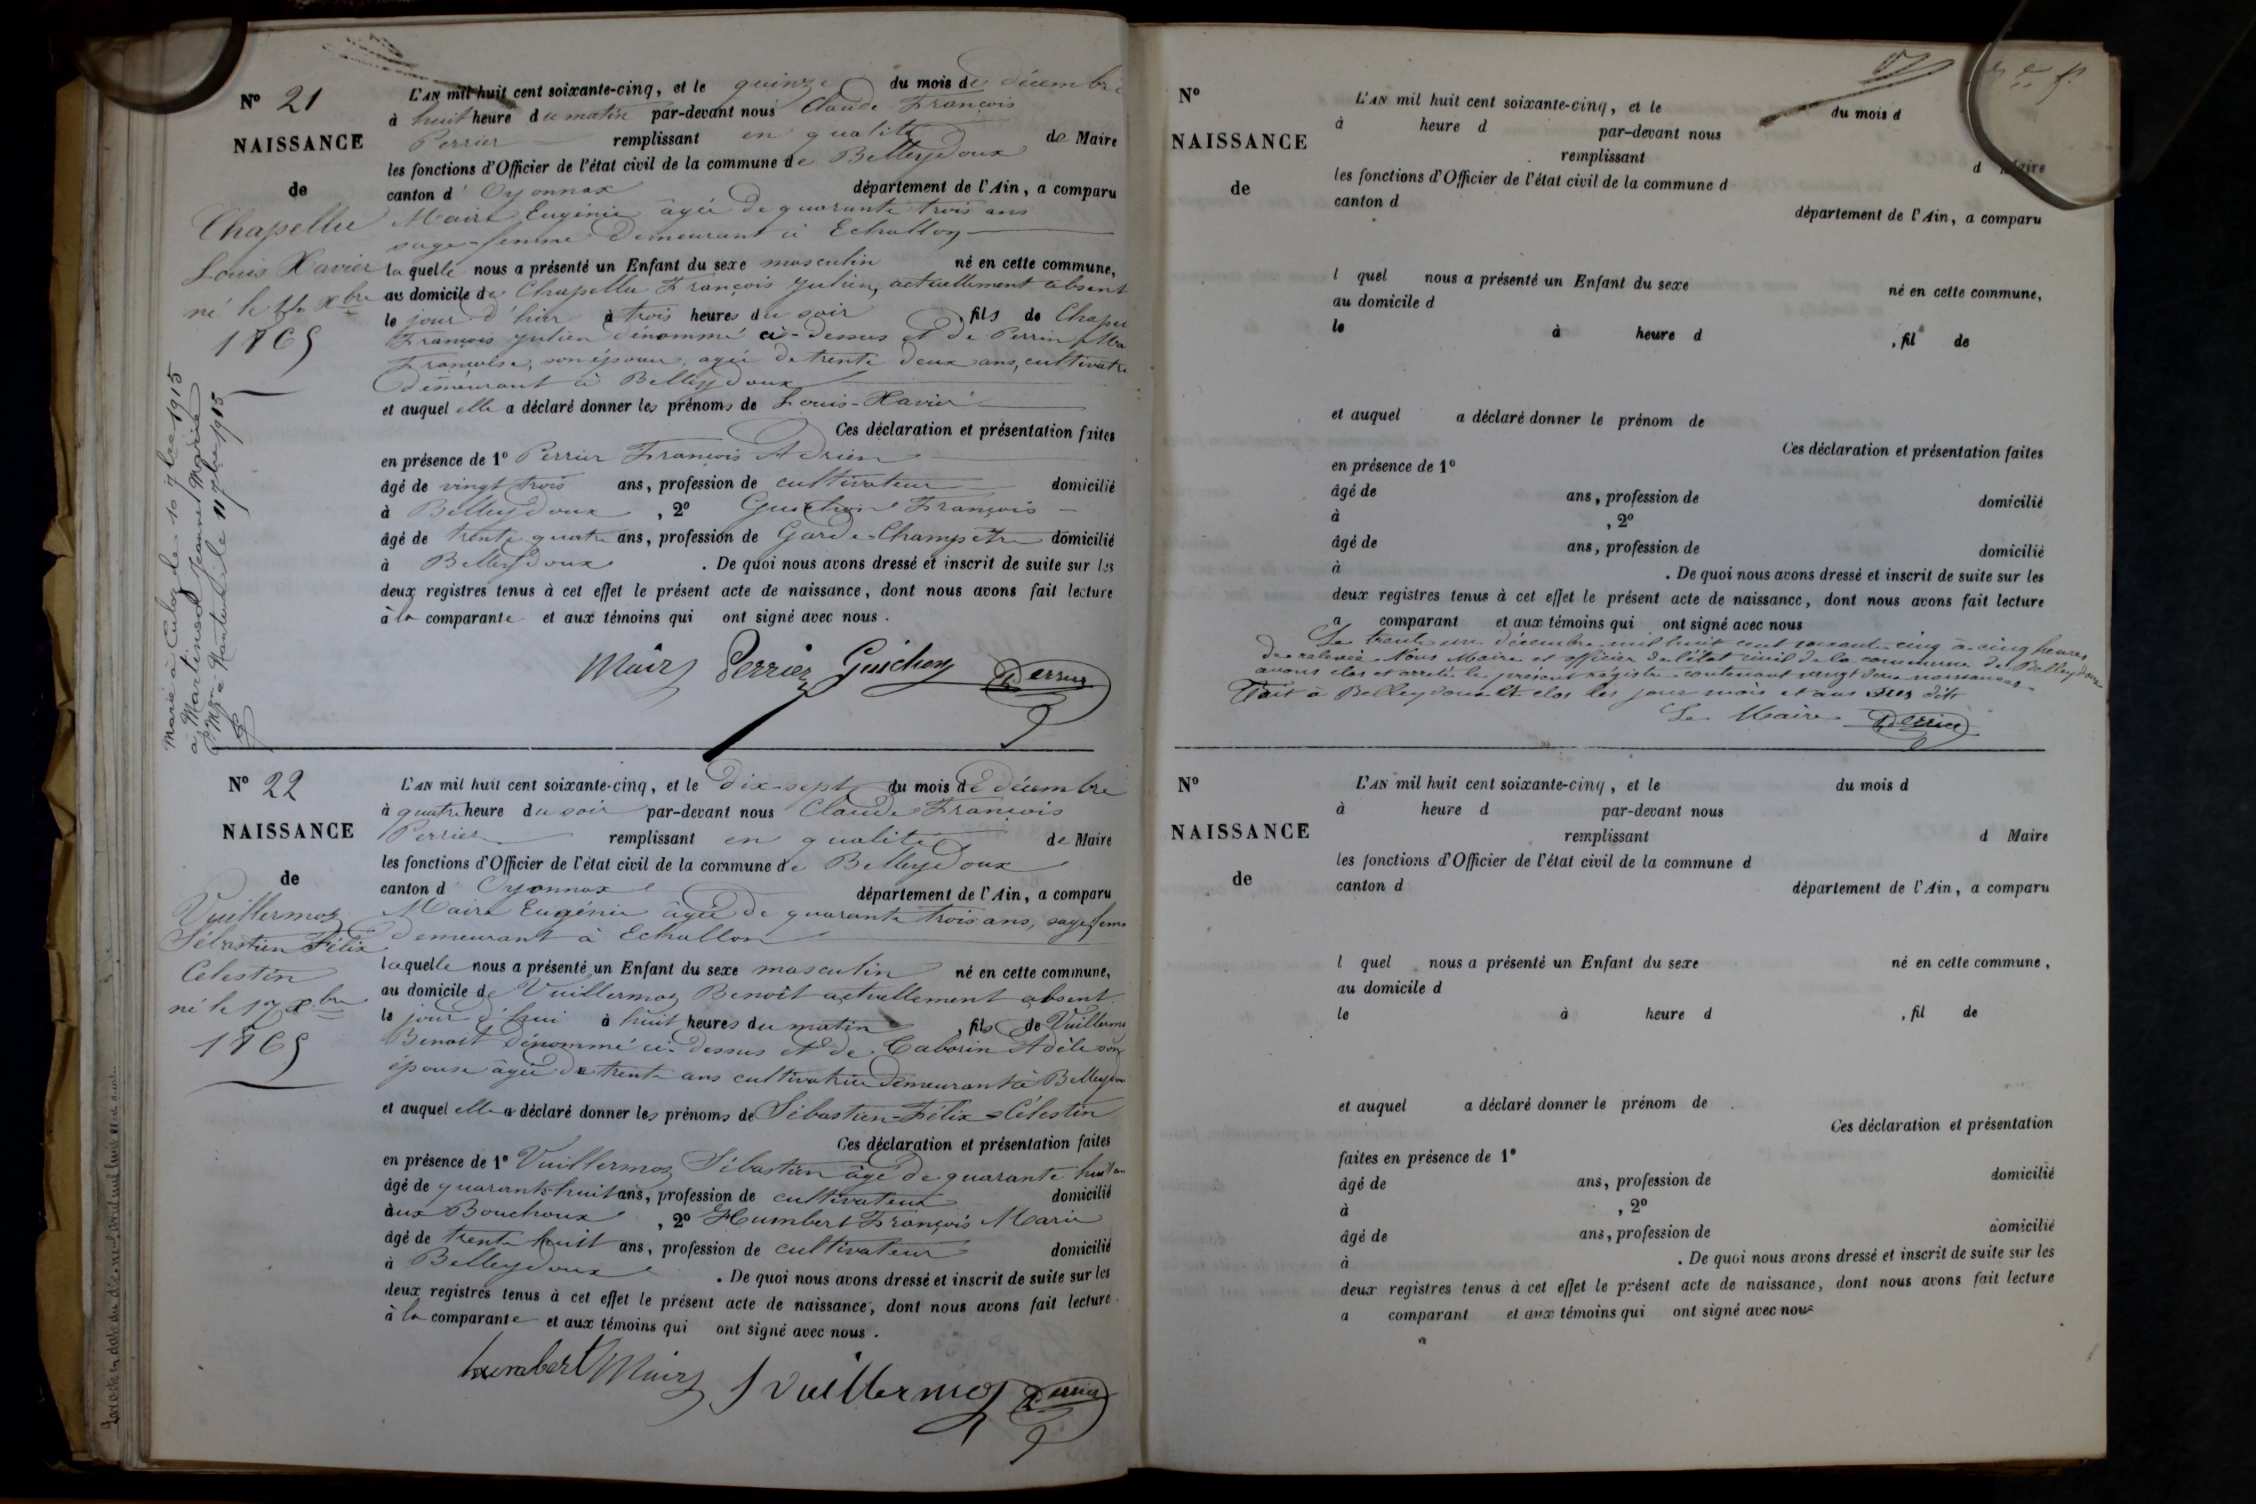 N° 21
NAISSANCE
de
Chapellu
Louis Xavier
né le 14 Xbre
1865
Marié à Culoz le 10 7bre 1915
à Martinod Jeanne Marie
Nantua le 11 7bre 1915
L'AN mil huit cent soixante-cinq, et le quinze du mois de décembre
à huit heure du matin par-devant nous Claude François
Perrier remplissant en qualité de Maire
les fonctions d'Officier de l'état civil de la commune de Belleydoux
canton d'Oyonnax département de l'Ain, a comparu
Maire Eugénie âgée de quarante trois ans
sage-femme demeurant à Echallon
laquelle nous a présenté un Enfant du sexe masculin né en cette commune,
au domicile de Chapellu François Julien, actuellement absent
le jour d'hier à trois heures du soir, fils de
François Julien dénommé ci-dessus et de Perrin
Françoise, son épouse, agée de trente deux ans,
demeurant à Belleydoux
et auquel elle a déclaré donner les prénoms de Louis-Xavier
Ces déclaration et présentation faites
en présence de 1° Perrier François Adrien
âgé de vingt trois ans, profession de cultivateur domicilié
à Belleydoux, 2° Guichon François
âgé de trente quatre ans, profession de Garde-Champêtre domicilié
à Belleydoux. De quoi nous avons dressé et inscrit de suite sur les
deux registres tenus à cet effet le présent acte de naissance, dont nous avons fait lecture
à la comparante et aux témoins qui ont signé avec nous.
Maire Perrier Guichon Perrier
N° 22
NAISSANCE
de
Vuillermoz
Sébastien Félix
Celestin
né le 17 Xbre
1865
L'AN mil huit cent soixante-cinq, et le dix-sept du mois de décembre
à quatre heure du soir par-devant nous Claude François
Perrier remplissant en qualité de Maire
les fonctions d'Officier de l'état civil de la commune de Belleydoux
canton d'Oyonnax département de l'Ain, a comparu
Maire Eugénie âgée de quarante trois ans, sage fem
demeurant à Echallon
laquelle nous a présenté un Enfant du sexe masculin né en cette commune,
au domicile de Vuillermoz Benoît actuellement absent
le jour d'hui à huit heures du matin, fils de Vuillermo
Benoît dénommé ci-dessus et de Caborin Adèle son
épouse âgée de trente ans cultivatrice demeurant à Belleydou
et auquel elle a déclaré donner les prénoms de Sébastien-Félix-Célestin
Ces déclaration et présentation faites
en présence de 1° Vuillermoz Sébastien âgé de quarante huit an
âgé de quarante-huit ans, profession de cultivateur domicilié
aux Bouchoux, 2° Humbert François Marie
âgé de trente huit ans, profession de cultivateur domicilié
à Belleydoux. De quoi nous avons dressé et inscrit de suite sur les
deux registres tenus à cet effet le présent acte de naissance, dont nous avons fait lecture
à la comparante et aux témoins qui ont signé avec nous.
humbert Maire S Vuillermoz Perrier
N°
NAISSANCE
de
L'AN mil huit cent soixante-cinq, et le du mois d
à heure d par-devant nous
remplissant d Maire
les fonctions d'Officier de l'état civil de la commune d
canton d département de l'Ain, a comparu
l quel nous a présenté un Enfant du sexe né en cette commune,
au domicile d
le à heure d , fil de
et auquel a déclaré donner le prénom de
Ces déclaration et présentation faites
en présence de 1°
âgé de ans, profession de domicilié
à , 2°
âgé de ans, profession de domicilié
à . De quoi nous avons dressé et inscrit de suite sur les
deux registres tenus à cet effet le présent acte de naissance, dont nous avons fait lecture
a comparant et aux témoins qui ont signé avec nous
Le trente un décembre mil huit cent soixante-cinq à cinq heures
de relevée Nous Maire et officier de l'état civil de la commune de Belleydoux
avons clos et arrêté le présent registre contenant vingt deux naissances.
Fait à Belleydoux et clos les jour mois et ans sus dits
Le Maire Perrier
N°
NAISSANCE
de
L'AN mil huit cent soixante-cinq, et le du mois d
à heure d par-devant nous
remplissant d Maire
les fonctions d'Officier de l'état civil de la commune d
canton d département de l'Ain, a comparu
l quel nous a présenté un Enfant du sexe né en cette commune,
au domicile d
le à heure d , fil de
et auquel a déclaré donner le prénom de
Ces déclaration et présentation
faites en présence de 1°
âgé de ans, profession de domicilié
à , 2°
âgé de ans, profession de domicilié
à . De quoi nous avons dressé et inscrit de suite sur les
deux registres tenus à cet effet le présent acte de naissance, dont nous avons fait lecture
a comparant et aux témoins qui ont signé avec nous